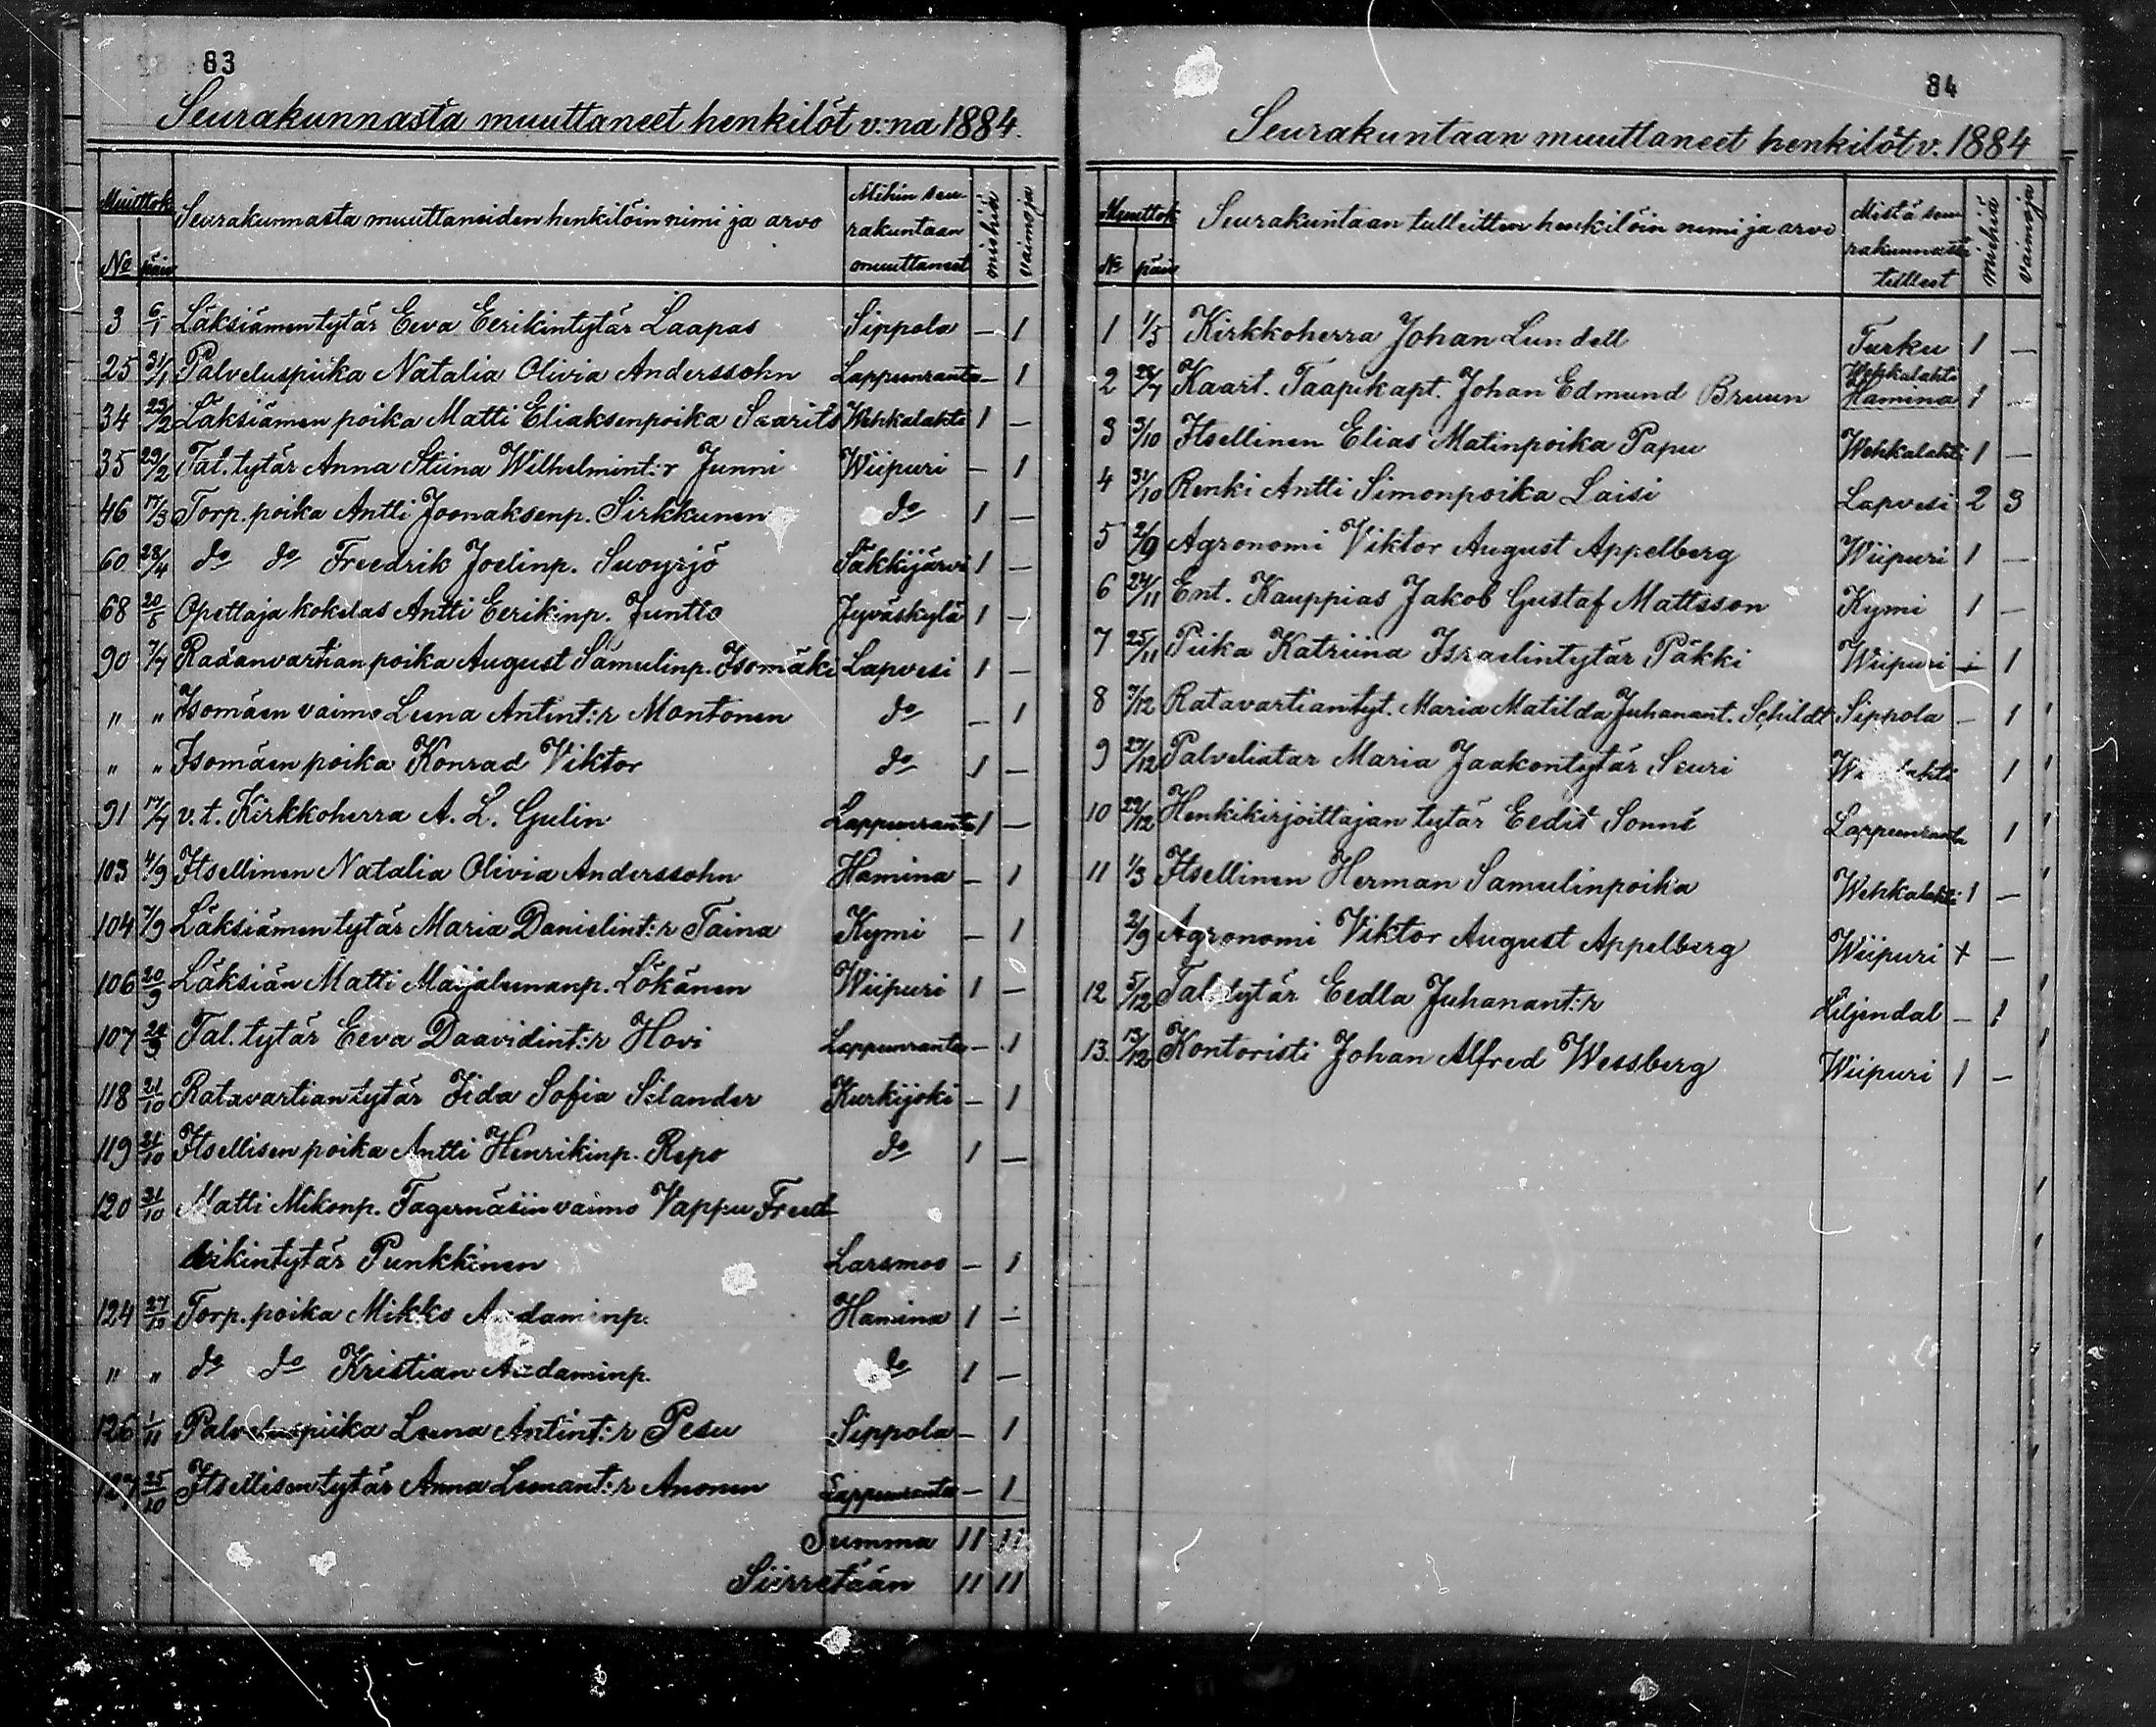 83
Seurakunnasta muuttaneet henkilöt v:na 1884.
Muuttok
No päiv
Seurakunnasta muuttaneiden henkilöin nimi ja arvo
Mihin seu-
rakuntaan
muuttaneet
miehiä
vaimoja
3 6/1 Läksiämen tytär Eeva Eerikintytär Laapas Sippola — 1
25 31/1 Palveluspiika Natalia Olivia Anderssohn Lappeenranta — 1
34 29/2 Läksiämen poika Matti Eliaksenpoika Saarits Wehkalahti 1 —
35 29/2 Tal. tytär Anna Stiina Wilhelmint:r Junni Wiipuri — 1
46 17/3 Torp. poika Antti Joonaksenp. Sirkkunen do 1 —
60 28/4 do do Freedrik Joelinp. Suoyrjö Säkkijärvi 1 —
68 20/5 Opettaja kokelas Antti Eerikinp. Juntto Jyväskylä 1 —
90 7/7 Radanvartian poika August Samulinp. Isomäki Lapvesi 1 —
" " Isomäen vaimo Leena Antint:r Montonen do — 1
" " Isomäen poika Konrad Viktor do 1 —
91 17/7 v. t. Kirkkoherra A. L. Gulin Lappeenranta 1 —
103 4/9 Itsellinen Natalia Olivia Anderssohn Hamina — 1
104 7/9 Läksiämen tytär Maria Danielint:r Taina Kymi — 1
106 20/9 Läksiän Matti Maijaleenanp. Lökänen Wiipuri 1 —
107 24/9 Tal. tytär Eeva Daavidint:r Hovi Lappeenranta — 1
118 21/10 Ratavartian tytär Iida Sofia Silander Kurkijoki — 1
119 21/10 Itsellisen poika Antti Henrikinp. Repo do 1 —
120 31/10 Matti Mikonp. Fagernäsin vaimo Vappu Freed-
rikintytär Punkkinen Larsmoo — 1
124 27/10 Torp. poika Mikko Aadaminp. Hamina 1 —
" " do do Kristian Aadaminp. do 1 —
126 1/11 Palveluspiika Leena Antint:r Pesu Sippola — 1
127 25/10 Itsellisen tytär Anna Leenant:r Anonen Lappeenranta — 1
Summa 11 11
Siirretään 11 11
84
Seurakuntaan muuttaneet henkilöt v. 1884
Muuttok
No päiv
Seurakuntaan tulleitten henkilöin nimi ja arvo
Mistä seu-
rakunnasta
tulleet
miehiä
vaimoja
1 1/5 Kirkkoherra Johan Lundell Turku 1 —
2 28/7 Kaart. Taapikapt. Johan Edmund Bruun Wehkalahti Hamina 1 —
3 3/10 Itsellinen Elias Matinpoika Papu Wehkalahti 1 —
4 31/10 Renki Antti Simonpoika Laisi Lapvesi 2 3
5 2/9 Agronomi Viktor August Appelberg Wiipuri 1 —
6 24/11 Ent. Kauppias Jakob Gustaf Mattsson Kymi 1 —
7 25/11 Piika Katriina Israelintytär Päkki Wiipuri — 1
8 7/12 Ratavartiantyt. Maria Matilda Juhanant. Schildt Sippola — 1
9 27/12 Palveliatar Maria Jaakontytär Seuri 1
10 29/12 Henkikirjoittajan tytär Eedit Sonné Lappeenranta 1
11 1/3 Itsellinen Herman Samulinpoika Wehkalahti 1 —
2/9 Agronomi Viktor August Appelberg Wiipuri + —
12 5/12 Tal. tytär Eedla Juhanant:r Liljendal — 1
13. 13/12 Kontoristi Johan Alfred Wessberg Wiipuri 1 —